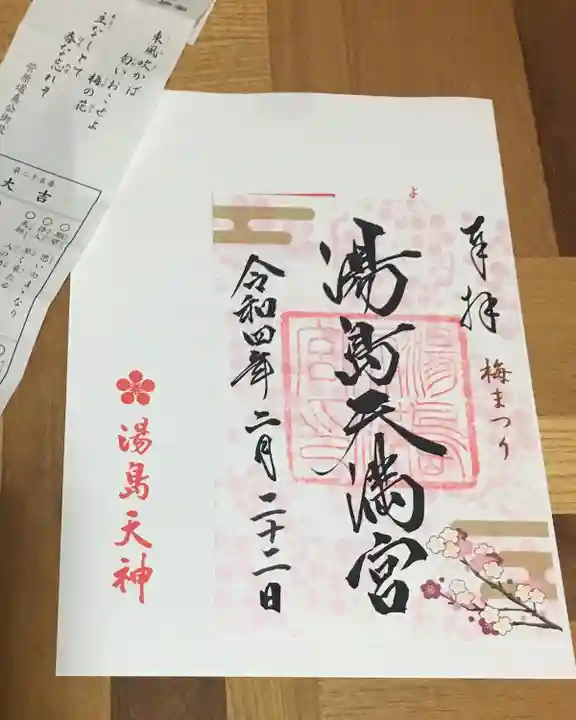 東風吹かば
匂いおこせよ
梅の花
主なしとて
春な忘れそ
菅原道真公御歌
大吉
奉拝
梅まつり
湯島天満宮
令和四年二月二十二日
湯島天神
よ